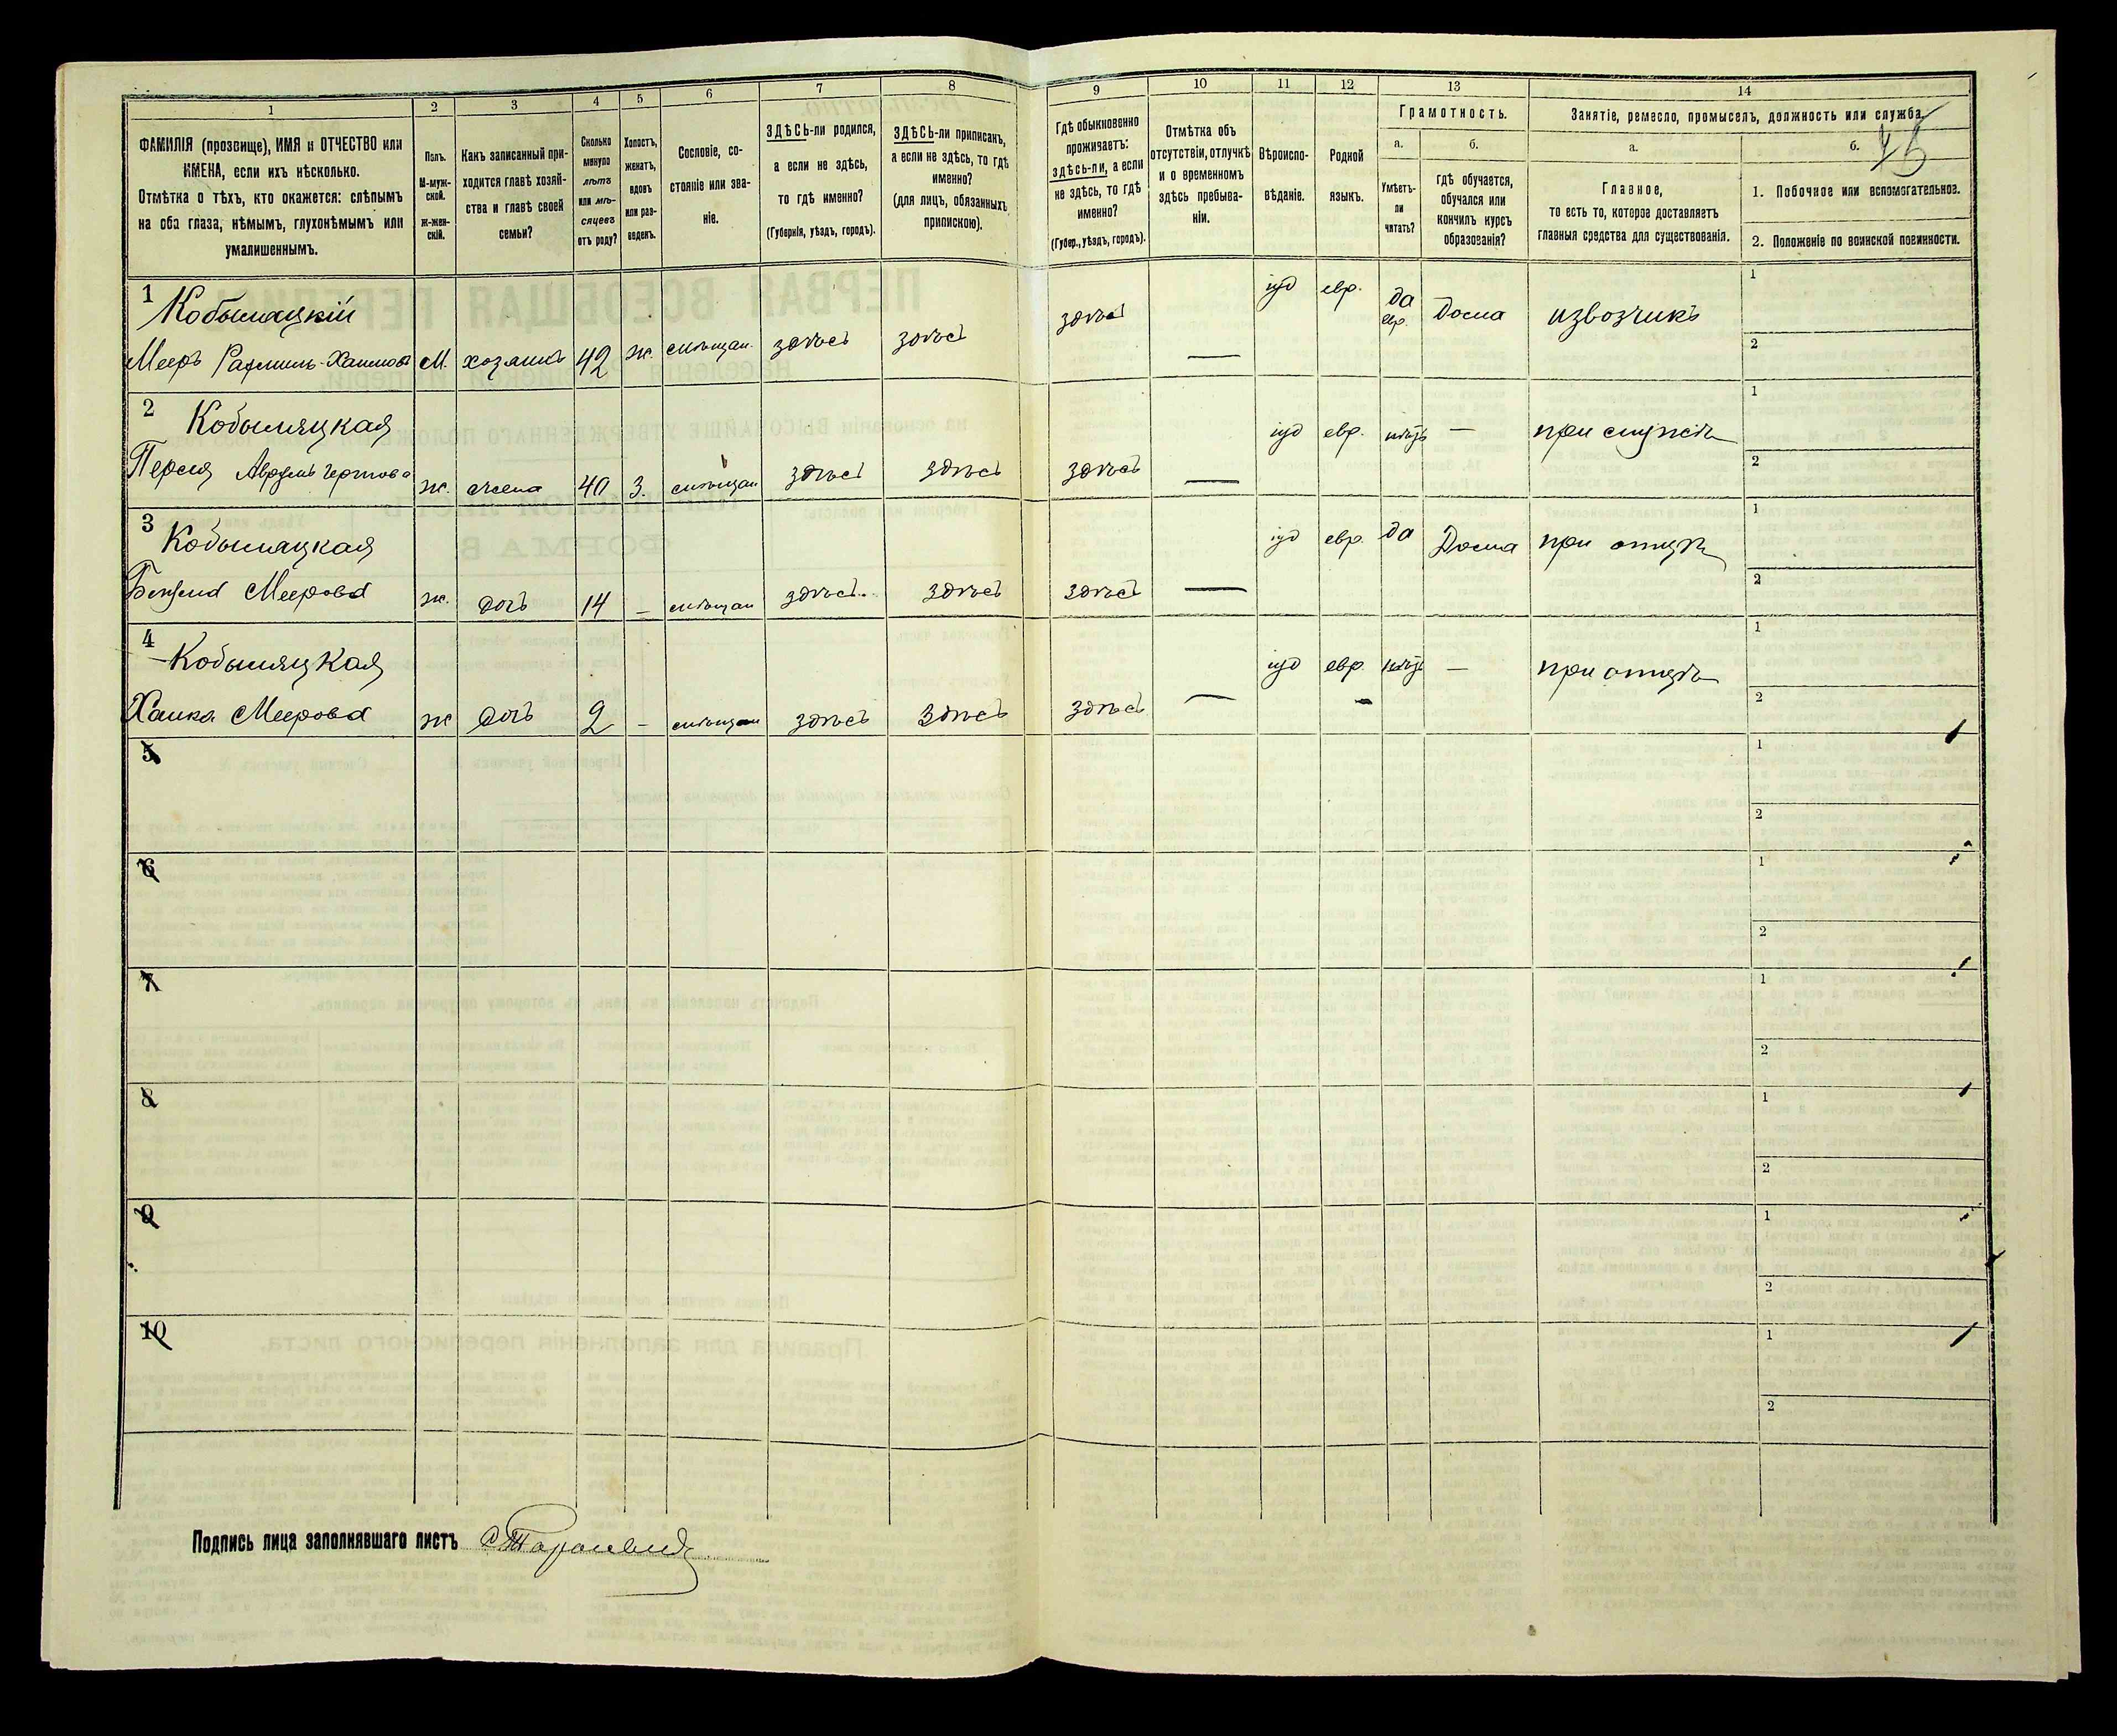 45
1 2 3 4 5 6 7 8 9 10 11 12 13 14
ФАМИЛІЯ (прозвище), ИМЯ и ОТЧЕСТВО или
ИМЕНА, если ихъ нѣсколько.
Отмѣтка о тѣхъ, кто окажется: слѣпымъ
на оба глаза, нѣмымъ, глухонѣмымъ или
умалишеннымъ.
Полъ.
М-муж-
ской.
Ж-жен-
скій.
Какъ записанный при-
ходится главѣ хозяй-
ства и главѣ своей
семьи?
Сколько
минуло
лѣтъ
или мѣ-
сяцевъ
отъ роду?
Холостъ,
женатъ,
вдовъ
или раз-
веденъ.
Сословіе, со-
стояніе или зва-
ніе.
ЗДѢСЬ-ли родился,
а если не здѣсь,
то гдѣ именно?
(Губернія, уѣздъ, городъ).
ЗДѢСЬ-ли приписанъ,
а если не здѣсь, то гдѣ
именно?
(для лицъ, обязанныхъ
припискою).
Гдѣ обыкновенно
проживаетъ:
здѣсь-ли, а если
не здѣсь, то гдѣ
именно?
(Губер., уѣздъ, городъ).
Отмѣтка объ
отсутствіи, отлучкѣ
и о временномъ
здѣсь пребыва-
ніи.
Вѣроиспо-
вѣданіе.
Родной
языкъ.
Грамотность.
а.
Умѣетъ-
ли
читать?
б.
Гдѣ обучается,
обучался или
кончилъ курсъ
образованія?
Занятіе, ремесло, промыселъ, должность или служба.
а.
Главное,
то есть то, которое доставляетъ
главныя средства для существованія.
б.
1. Побочное или вспомогательное.
2. Положеніе по воинской повинности.
1 Кобыляцкій іуд евр. да Дома извозчикъ 1
евр.
Мееръ М. хозяинъ 42 ж. мѣщан. здѣсь здѣсь здѣсь — 2
2 Кобыляцкая іуд евр. нѣтъ — при мужѣ 1
Песя ж. жена 40 з. мѣщан здѣсь здѣсь здѣсь — 2
3 Кобыляцкая іуд евр. да Дома при отцѣ 1
Меерова ж. дочь 14 — мѣщан здѣсь здѣсь здѣсь — 2
4 Кобыляцкая іуд евр. нѣтъ — при отцѣ 1
Хайка Меерова ж дочь 2 — мѣщан здѣсь здѣсь здѣсь — 2
5 1
2
6 1
2
7 1
2
8 1
2
9 1
2
10 1
2
Подпись лица заполнявшаго листъ